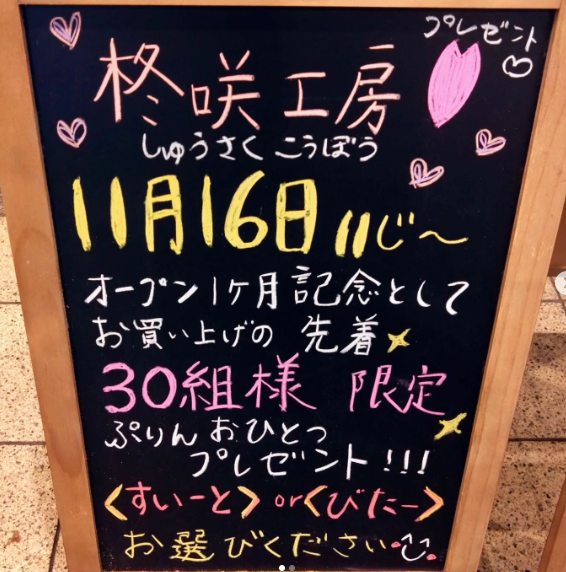 プレゼント
柊咲工房
しゅうさくこうぼう
11月16日 11じ〜
オープン1ヶ月記念として
お買い上げの 先着
30組様 限定
ぷりんおひとつ
プレゼント!!!
<すいーと>or<びたー>
お選びください